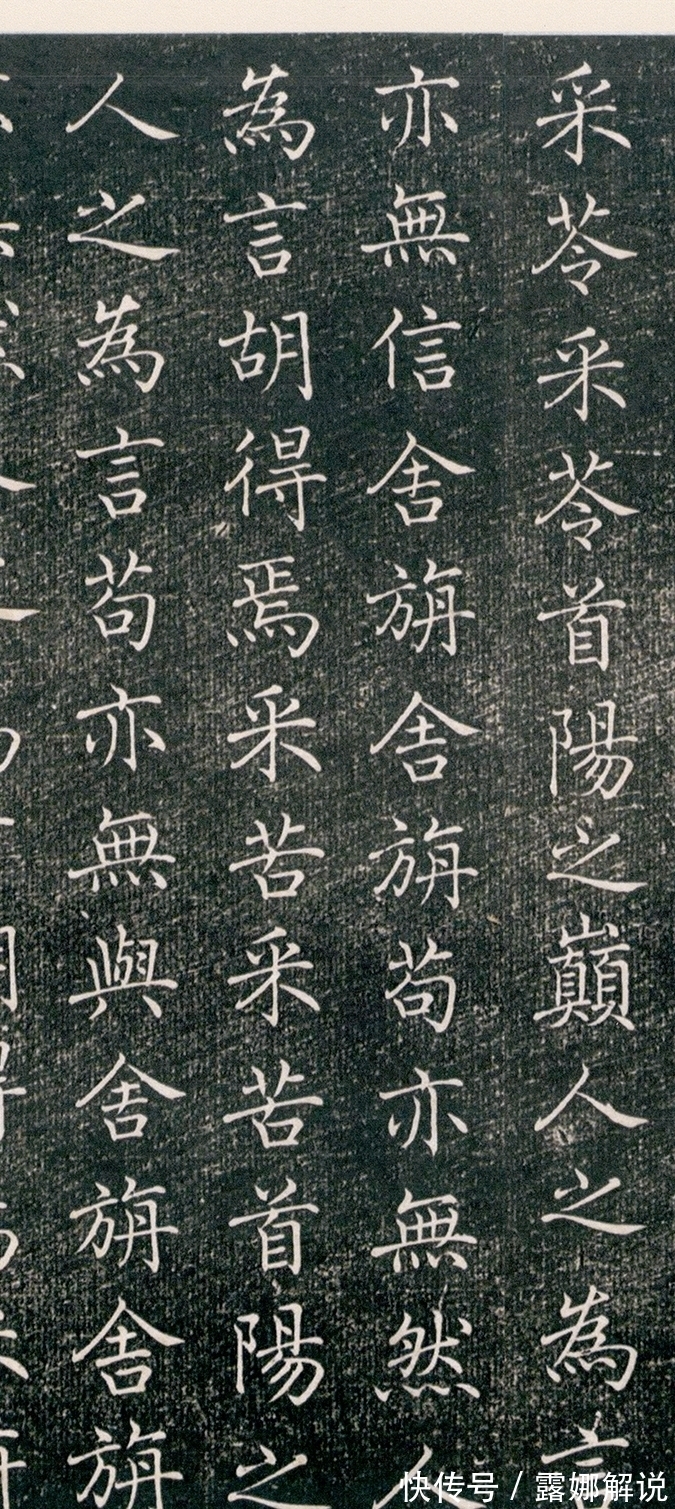 采苓采苓首陽之巔人之為言
亦無信舍旃舍旃苟亦無然人
為言胡得焉采苦采苦首陽之
人之為言苟亦無與舍旃舍旃
快传号 / 露娜解说